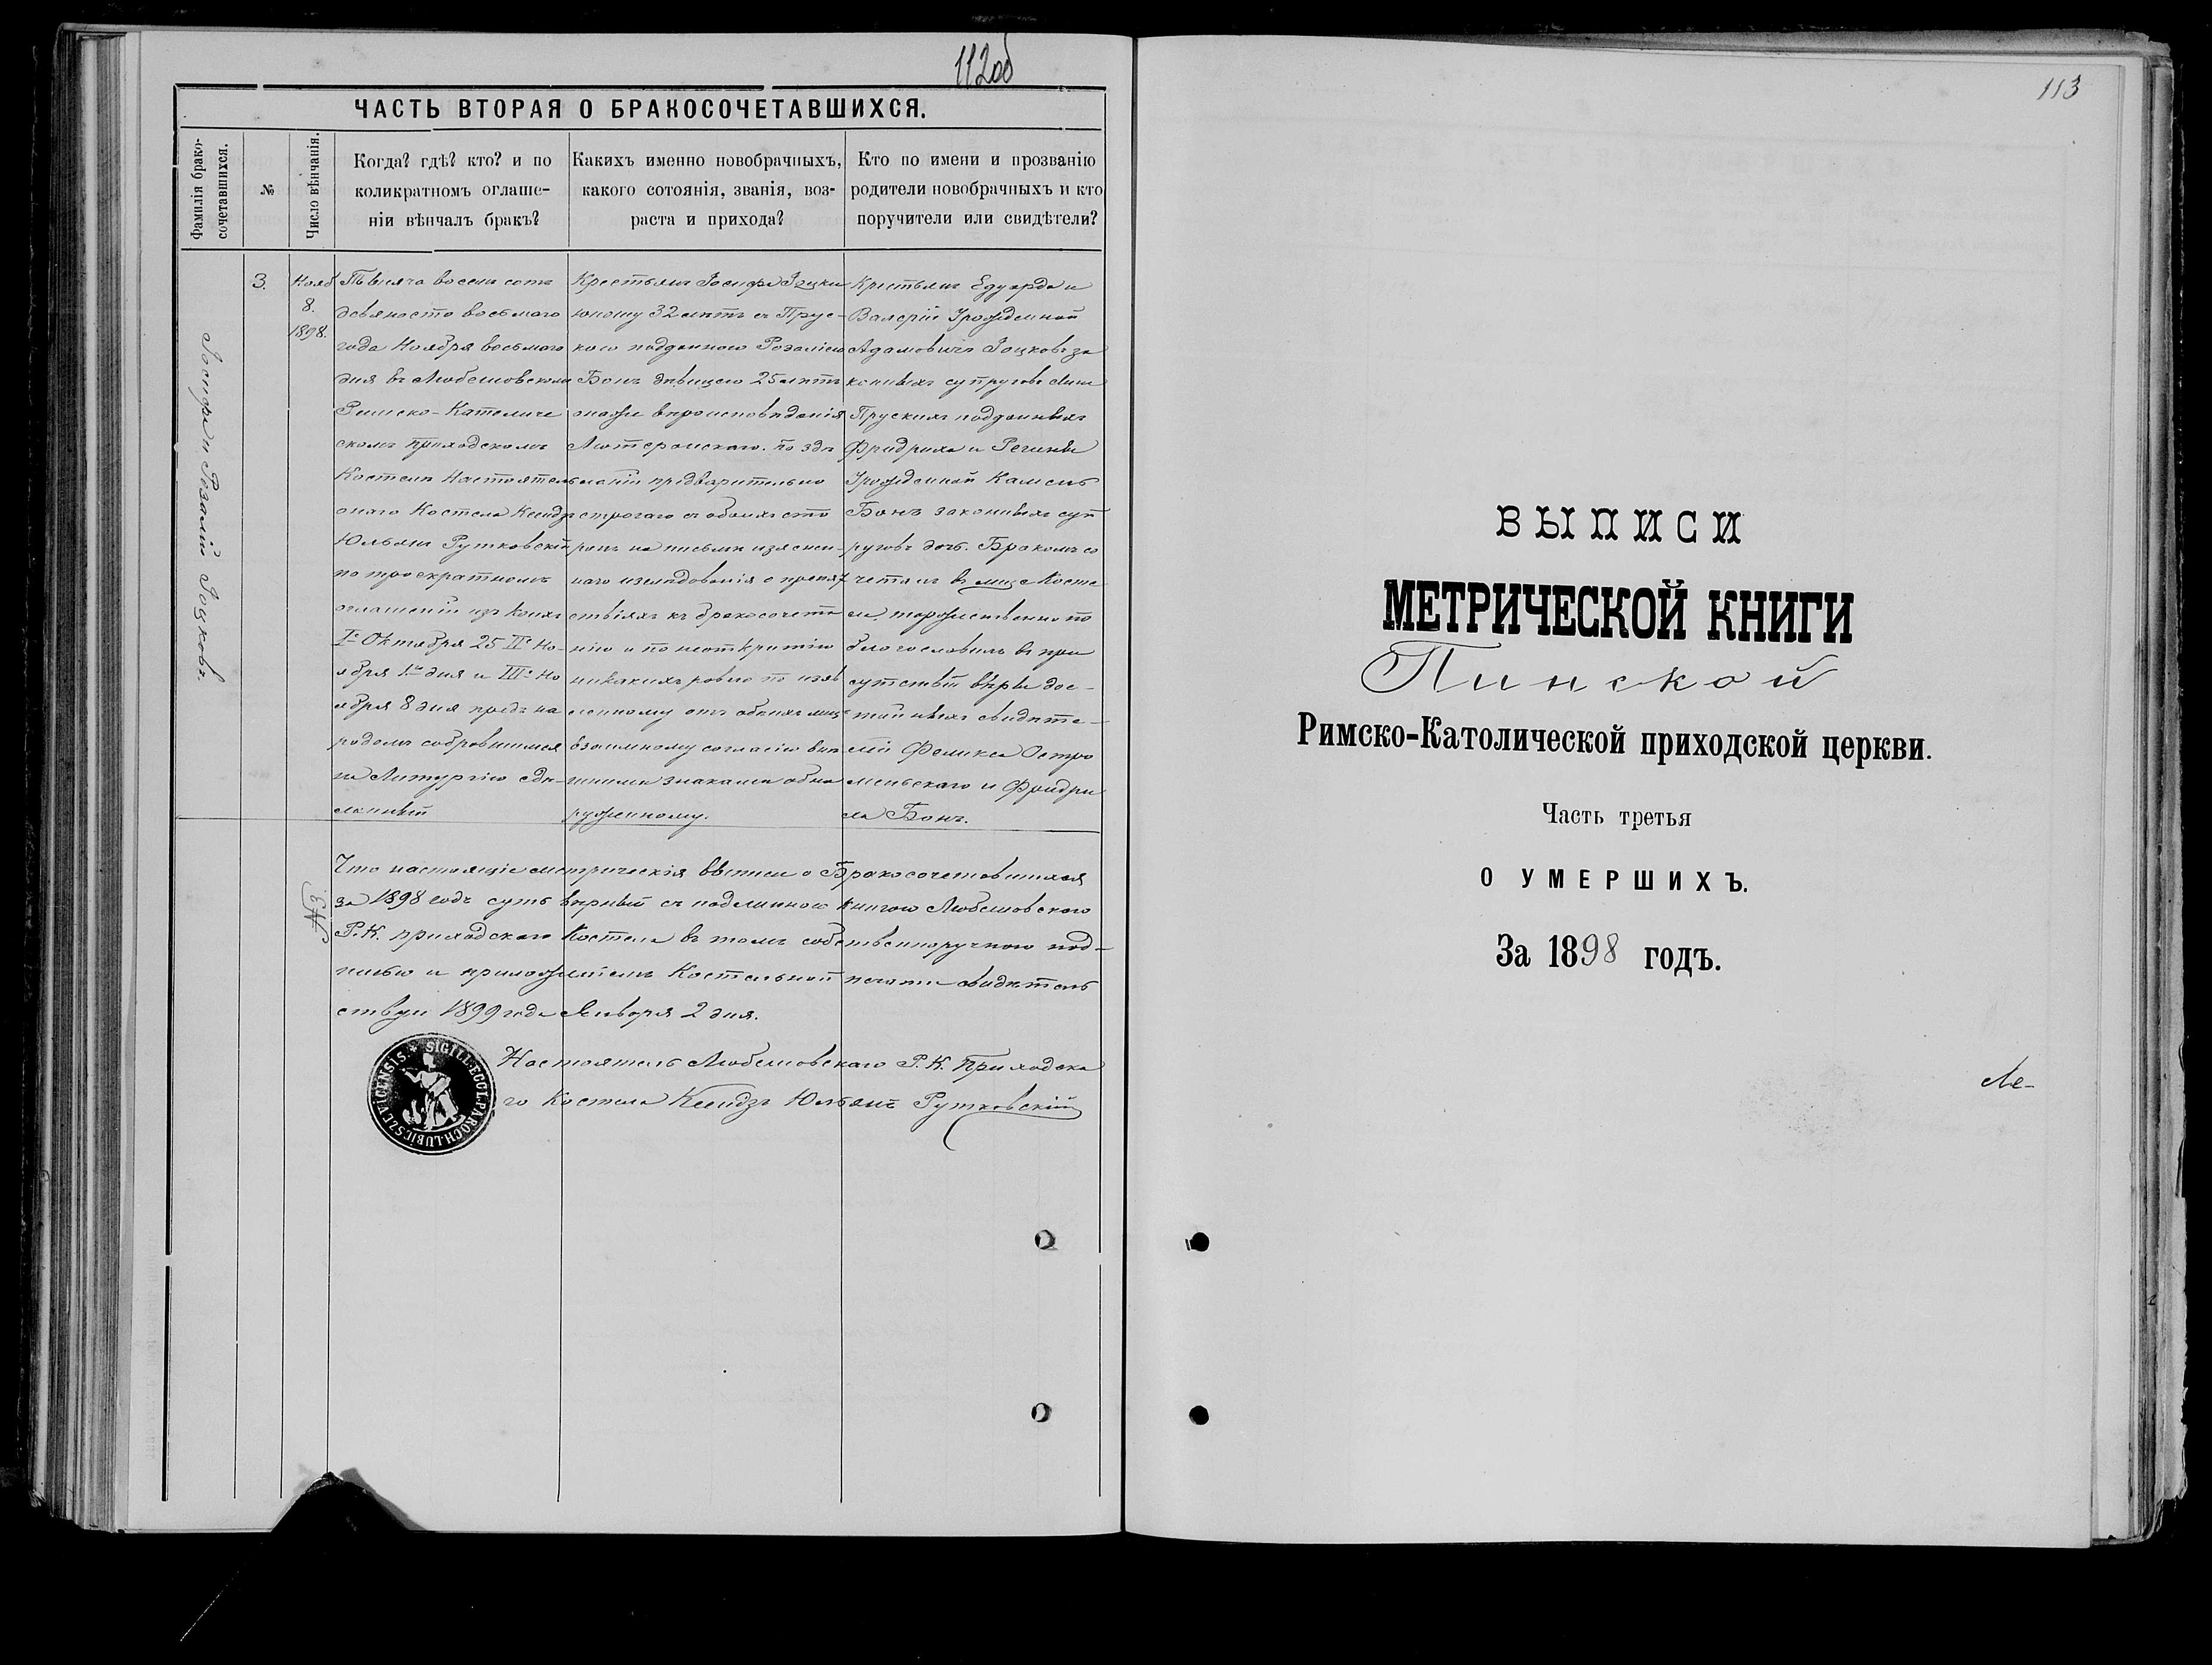 112об
ЧАСТЬ ВТОРАЯ О БРАКОСОЧЕТАВШИХСЯ.
Фамилія брако-
сочетавшихся.
№
Число вѣнчанія.
Когда? гдѣ? кто? и по
коликратномъ оглаше-
ніи вѣнчалъ бракъ?
Какихъ именно новобрачныхъ,
какого сотоянія, званія, воз-
раста и прихода?
Кто по имени и прозванію
родители новобрачныхъ и кто
поручители или свидѣтели?
Іосифъ и Розалію Гоцковъ.
3.
Нояб
8.
1898.
Тысяча восемь сотъ
девяносто восьмого
года Ноября восьмого
дня въ Любешовскомъ
Римско-Католиче
скомъ приходскомъ
Костелѣ Настоятель
онаго Костела Ксендзъ
Юльянъ Рутковскій
по троекратномъ
оглашеніи изъ коихъ
I-е Октября 25 II-е Но-
ября 1-го дня и III-е Но
ября 8 дня предъ на
родомъ собравшимся
на Литургію сдѣ-
ланный
Крестьян Іосифа Гоцки
юношу 32 лѣтъ съ Прус-
кою подданною Розаліею
Бонъ дѣвицею 25 лѣтъ
вѣроисповѣданія
Лютеранскаго. По здѣ
ланіи предварительно
строгаго съ обоихъ сто
ронъ на письмѣ изясни-
наго изслѣдованія о препят
ствіяхъ къ бракосочета
нію и по неоткрытію
никакихъ ровно по изяв
ленному отъ обоихъ лицъ
взаимному согласію внѣ
шними знаками обна
руженному.
Крестьянъ Едуарда и
Валеріи Урожденной
Адамовичъ Гоцковъ за
конныхъ супруговъ сына
Прускихъ подданныхъ
Фридриха и Регины
Урожденной Камень
Бонъ законныхъ суп
руговъ дочь. Бракомъ со
четалъ въ лице Косте
ла торжественно по
благословилъ въ при
сутствіи вѣры дос-
тойныхъ свидѣте-
лей Феликса Остро
меньскаго и Фридри
ха Бонъ.
№3.
Что настоящіе метрическія выписи о Бракосочетовшихся
за 1898 годъ суть вѣрный съ подлинною книгою Любешовского
Р.К. приходскаго Костела въ томъ собственноручною под-
писью и приложеніемъ Костельной печати свидѣтель
ствую 1899 года Января 2 дня.
SIGILL.ECCL.PAROCH.LUBIESZEVICIENSIS.
Настоятель Любешовскаго Р.К. Приходска
го Костела Ксендзъ Юльянъ Рутковскій
113
ВЫПИСИ
МЕТРИЧЕСКОЙ КНИГИ
Пинской
Римско-Католической приходской церкви.
Часть третья
О УМЕРШИХЪ.
За 1898 годъ.